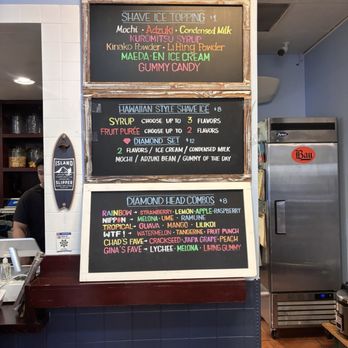 SHAVE ICE TOPPING $1
Mochi • Adzuki • Condensed Milk
KUROMITSU SYRUP
Kinako Powder • Li Hing Powder
MAEDA-EN ICE CREAM
GUMMY CANDY
HAWAIIAN STYLE SHAVE ICE $8
SYRUP CHOOSE UP TO 3 FLAVORS
FRUIT PURÉE CHOOSE UP TO 2 FLAVORS
DIAMOND SET $12
2 FLAVORS / ICE CREAM / CONDENSED MILK
MOCHI / ADZUKI BEAN / GUMMY OF THE DAY
DIAMOND HEAD COMBOS $8
RAINBOW → STRAWBERRY • LEMON • APPLE • RASPBERRY
NIPPON → MELONA • UME • RAMUNE
TROPICAL → GUAVA • MANGO • LILIKOI
WTF! → WATERMELON • TANGERINE • FRUIT PUNCH
CHAD'S FAVE → CRACKSEED • JAPA GRAPE • PEACH
GINA'S FAVE → LYCHEE • MELONA • LI HING GUMMY
ISLAND
SLIPPER